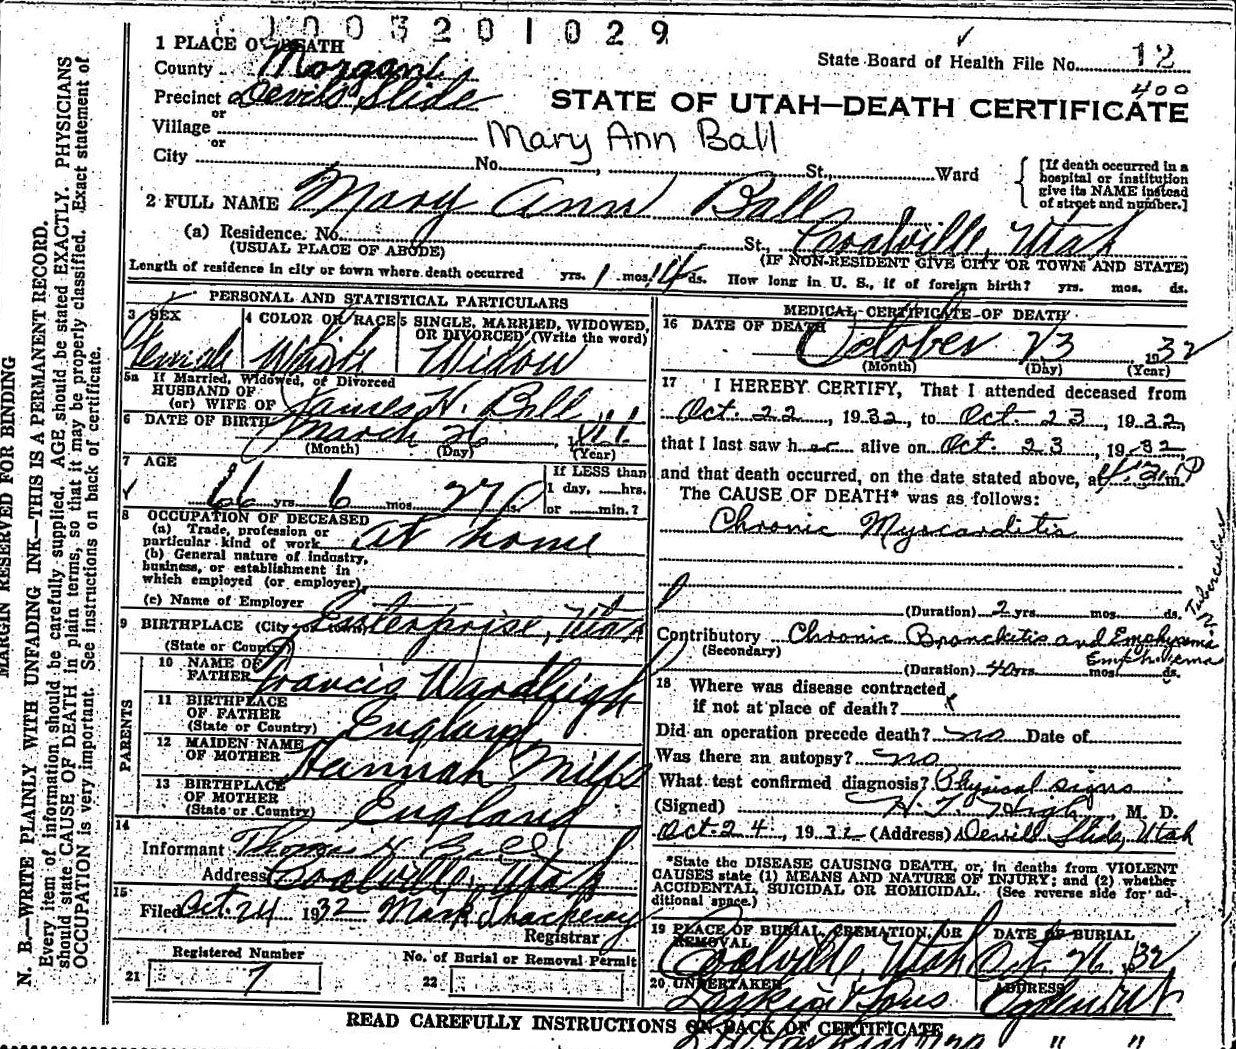 1003201029
1 PLACE OF DEATH
County Morgan
State Board of Health File No. 12
400
Precinct Devils Slide
or
STATE OF UTAH—DEATH CERTIFICATE
Village
or
Mary Ann Ball
City No. , St., Ward
[If death occurred in a hospital or institution give its NAME instead of street and number.]
2 FULL NAME Mary Ann Ball
(a) Residence. No. St., Coalville, Utah
(USUAL PLACE OF ABODE) (IF NON-RESIDENT GIVE CITY OR TOWN AND STATE)
Length of residence in city or town where death occurred yrs. 1 mos. 14 ds. How long in U. S., if of foreign birth? yrs. mos. ds.
PERSONAL AND STATISTICAL PARTICULARS
3 SEX
Female
4 COLOR OR RACE
White
5 SINGLE, MARRIED, WIDOWED, OR DIVORCED (Write the word)
Widow
5a If Married, Widowed, or Divorced
HUSBAND OF
(or) WIFE OF James H. Ball
6 DATE OF BIRTH March 26,
(Month) (Day) (Year)
7 AGE
66 yrs. 6 mos. 27 ds.
If LESS than
1 day, hrs.
or min.?
8 OCCUPATION OF DECEASED
(a) Trade, profession or
particular kind of work at home
(b) General nature of industry,
business, or establishment in
which employed (or employer)
(c) Name of Employer
9 BIRTHPLACE (City or town) Enterprise, Utah
(State or Country)
PARENTS
10 NAME OF
FATHER Francis Wardleigh
11 BIRTHPLACE
OF FATHER
(State or Country) England
12 MAIDEN NAME
OF MOTHER Hannah Mills
13 BIRTHPLACE
OF MOTHER
(State or Country) England
14
Informant Thomas H Ball
Address Coalville, Utah
15
Filed Oct. 24 1932 Mark Thackeray
Registrar
Registered Number
21 7
No. of Burial or Removal Permit
22
MEDICAL CERTIFICATE OF DEATH
16 DATE OF DEATH
October 23 1932
(Month) (Day) (Year)
17 I HEREBY CERTIFY, That I attended deceased from
Oct. 22, 1932, to Oct. 23, 1932,
that I last saw her alive on Oct. 23, 1932,
and that death occurred, on the date stated above, at m. P
The CAUSE OF DEATH* was as follows:
Chronic Myocarditis
(Duration) 2 yrs. mos. ds.
Contributory Chronic Bronchitis and Emphysema
(Secondary)
Emphysema
(Duration) 40 yrs. mos. ds.
18 Where was disease contracted
if not at place of death?
Did an operation precede death? no Date of
Was there an autopsy? no
What test confirmed diagnosis? Physical signs
(Signed) H. T. High M. D.
Oct. 24, 1932 (Address) Devils Slide, Utah
*State the DISEASE CAUSING DEATH, or, in deaths from VIOLENT
CAUSES state (1) MEANS AND NATURE OF INJURY; and (2) whether
ACCIDENTAL, SUICIDAL OR HOMICIDAL. (See reverse side for ad-
ditional space.)
19 PLACE OF BURIAL, CREMATION, OR
REMOVAL
Coalville, Utah
DATE OF BURIAL
Oct. 26, 1932
20 UNDERTAKER
Larkin & Sons
ADDRESS
Ogden Ut
READ CAREFULLY INSTRUCTIONS ON BACK OF CERTIFICATE
" "
MARGIN RESERVED FOR BINDING
N. B.—WRITE PLAINLY WITH UNFADING INK—THIS IS A PERMANENT RECORD.
Every item of information should be carefully supplied. AGE should be stated EXACTLY. PHYSICIANS
should state CAUSE OF DEATH in plain terms, so that it may be properly classified. Exact statement of
OCCUPATION is very important. See instructions on back of certificate.